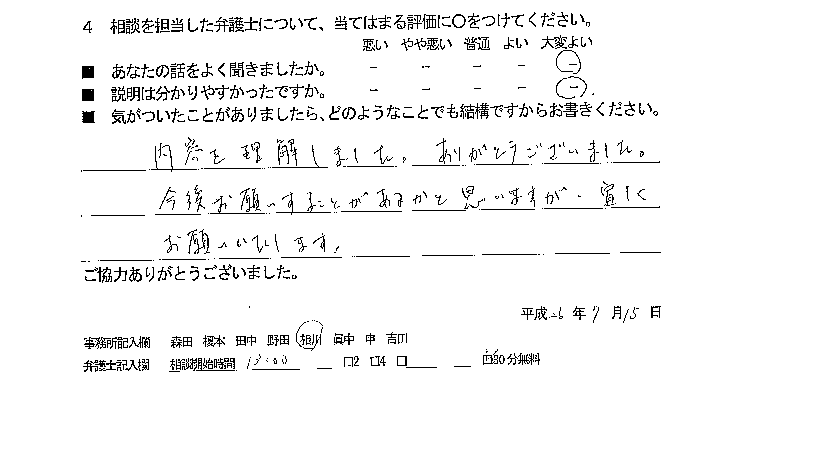 4 相談を担当した弁護士について、当てはまる評価に○をつけてください。
悪い やや悪い 普通 よい 大変よい
■ あなたの話をよく聞きましたか。 － － － － －
■ 説明は分かりやすかったですか。 － － － － －
■ 気がついたことがありましたら、どのようなことでも結構ですからお書きください。
内容を理解しました。ありがとうございました。
今後お願いすることがあるかと思いますが、宜しく
お願いいたします。
ご協力ありがとうございました。
平成26年7月15日
事務所記入欄 森田 榎本 田中 野田 相川 眞中 申 吉田
弁護士記入欄 相談開始時間 13:00 □2 □4 □ 30分無料